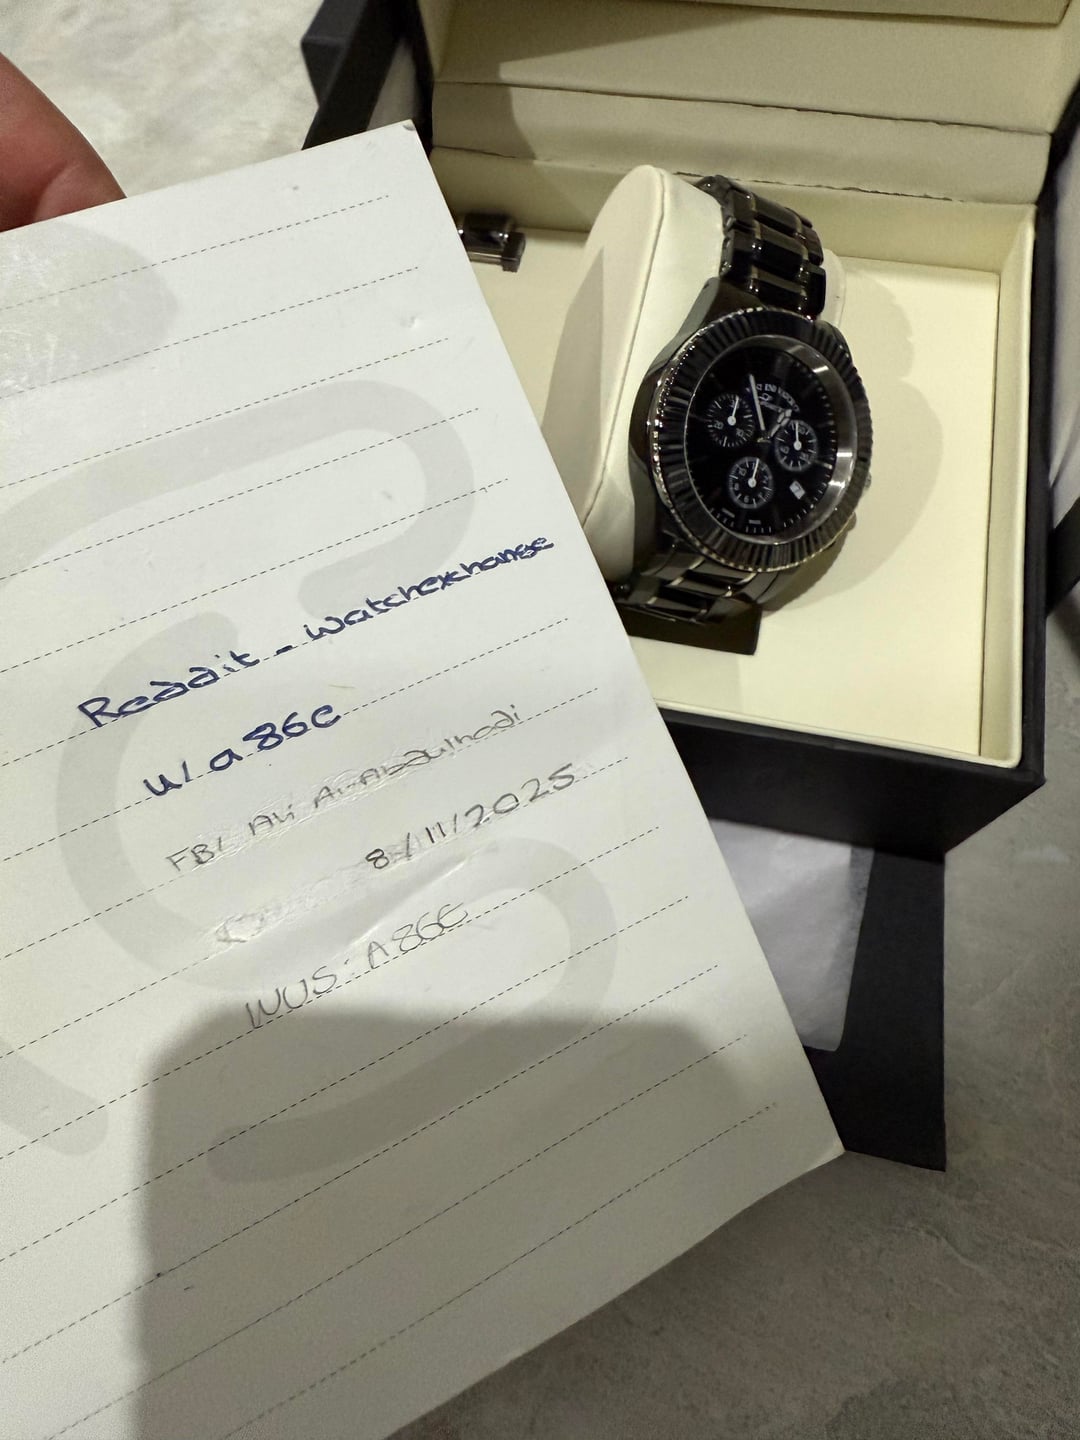 Reddit - watchexchange
u/ a86e
FB/ Ali Al-Abdulhadi
8/11/2025
WUS: A86E